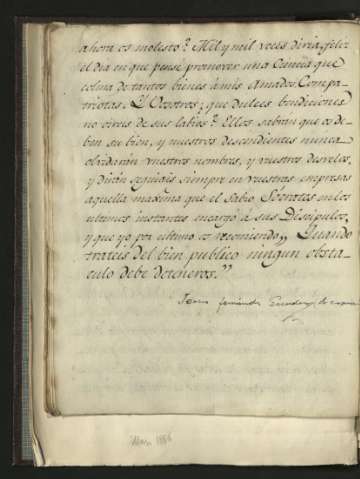 ahora os molesto? Mil y mil veces diria, feliz
el dia en que pensé promover una Ciencia que
colma de tantos bienes à mis amados Compa-
triotas. Y Vosotros, que dulces bendiciones
no oireis de sus labios? Ellos sabran que os de-
ben su bien, y nuestros descendientes nunca
olvidarán vuestros nombres, y vuestros desvelos,
y dirán seguiais siempre en vuestras empresas
aquella maxîma que el sabio Sócrates en los
ultimos instantes encargó à sus Discipulos,
y que yo por ultimo os recomiendo,, Quando
trateis del bien publico ningun obsta-
culo debe deteneros."
Mss. 1886